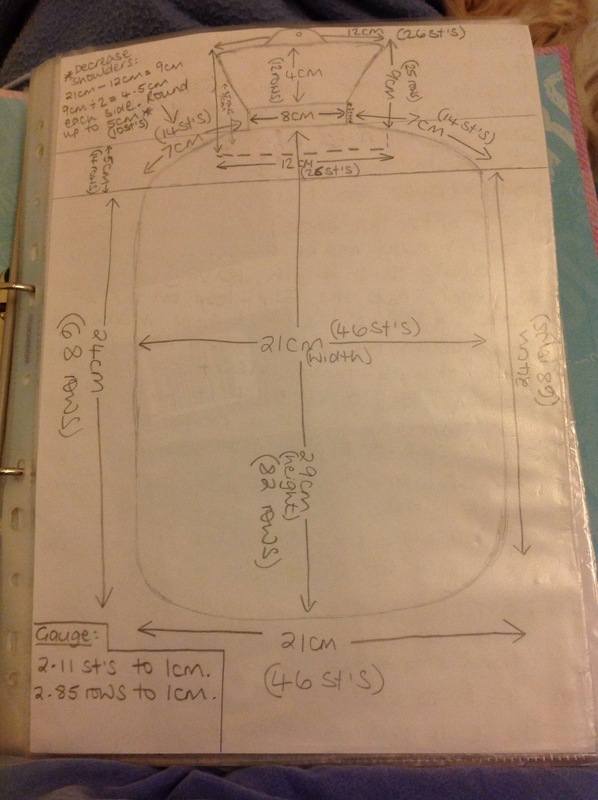 *Decrease
shoulders:
21cm - 12cm = 9cm
9cm ÷ 2 = 4.5cm
each side. Round
up to 5cm *
(10st's)
12cm (26st's)
4cm
9cm
(25 rows)
8cm
7cm (14st's)
7cm (14st's)
12cm
(26st's)
5cm
(14 rows)
24cm
(68 rows)
21cm (46st's)
(width)
24cm
(68 rows)
29cm
(height)
(82 rows)
21cm
(46 st's)
Gauge:
2.11 st's to 1cm.
2.85 rows to 1cm.